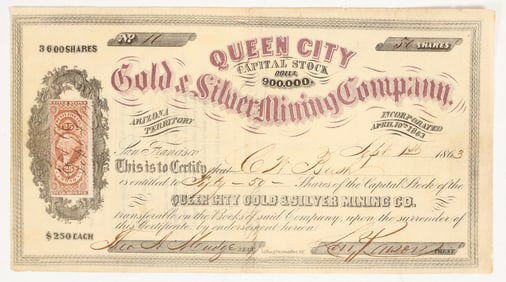 No 16
50 SHARES
3600 SHARES
QUEEN CITY
CAPITAL STOCK
DOLLS.
900,000.
Gold & Silver Mining Company.
ARIZONA TERRITORY
INCORPORATED APRIL 10TH 1863
San Francisco Sept 1st 1863
This is to Certify that C W Bush
is entitled to Fifty - 50 - Shares of the Capital Stock of the
QUEEN CITY GOLD & SILVER MINING CO.
transferable on the Books of said Company, upon the surrender of
this Certificate, by endorsement hereon
$250 EACH
25